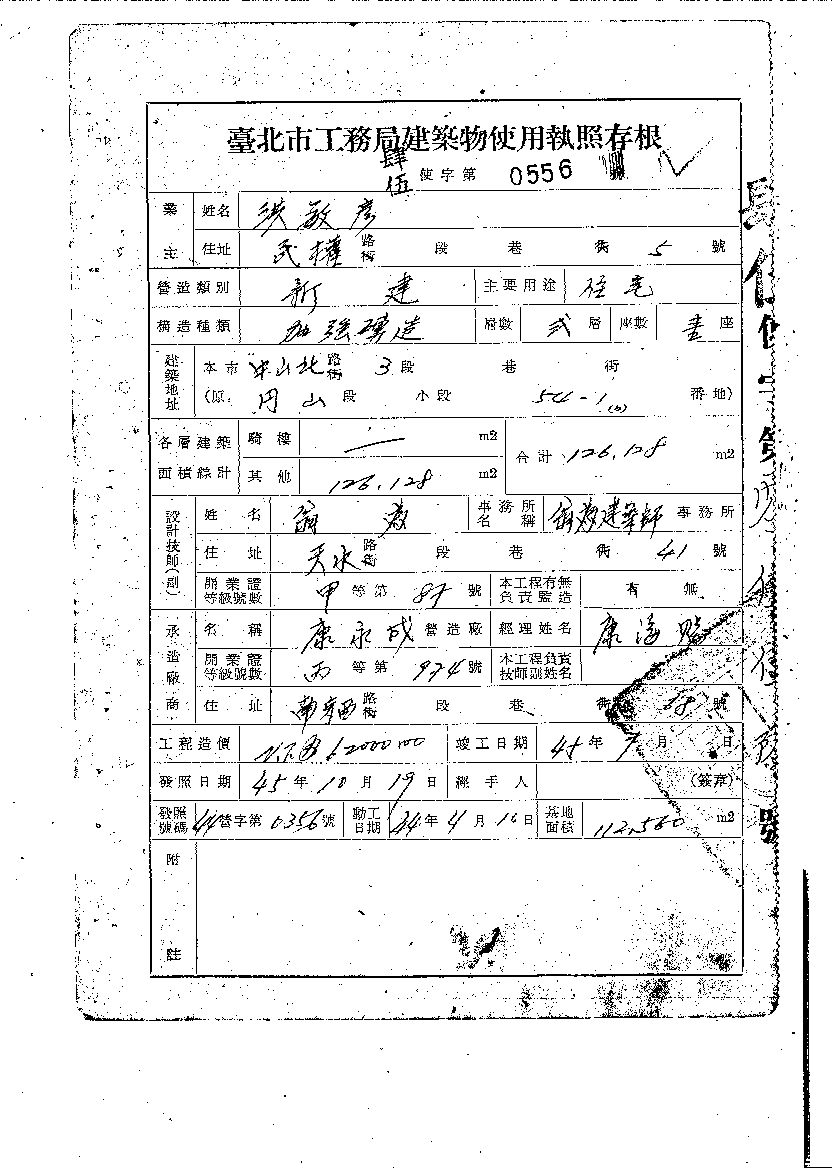 臺北市工務局建築物使用執照存根
肆伍 使字第 0556
業主 姓名 洪敏彦
住址 民權 路街 段 巷 街 5 號
營造類別 新建 主要用途 住宅
構造種類 加強磚造 層數 弍 層 座數 壹 座
建築地址 本市 中山北 路街 3 段 巷 街
(原 円山 段 小段 54-1 番地)
各層建築面積綜計 騎樓 m2 合計 126.128 m2
其他 126.128 m2
設計技師(副) 姓名 事務所名稱 建築師 事務所
住址 天水 路街 段 巷 街 41 號
開業證等級號數 甲 等第 87 號 本工程有無負責監造 有 無
承造廠商 名稱 康永成 營造廠 經理姓名 康
開業證等級號數 丙 等第 974 號 本工程負責技師副姓名
住址 南 路街 段 巷 街 號
工程造價 N.T.$ 62000.00 竣工日期 45 年 7 月 日
發照日期 45 年 10 月 19 日 經手人 (簽章)
發照號碼 44 營字第 0356 號 動工日期 44 年 4 月 16 日 基地面積 112.560 m2
附註